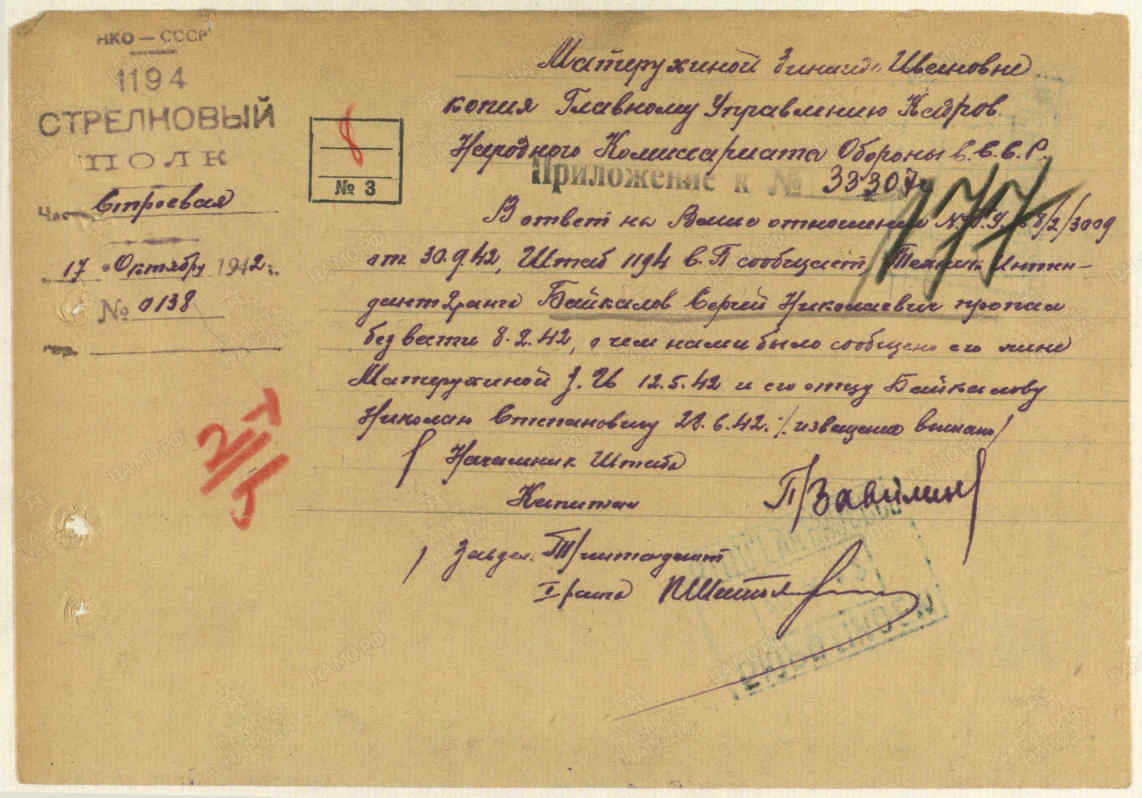 НКО — СССР
1194
СТРЕЛКОВЫЙ
ПОЛК
Часть Строевая
"17" Октября 1942 г.
№ 0138
гор.
8
№ 3
Матерухиной Зинаиде Ивановне
копия Главному Управлению Кадров
Народного Комиссариата Обороны С.С.С.Р.
Приложение к № 33307
177
В ответ на Ваше отношение № /2/3009
от 30.9.42, Штаб 1194 с.П сообщает, Техник Интен-
дант 2 ранга Байкалов Сергей Николаевич пропал
без вести 8.2.42, о чем нами было сообщено его жине
Матерухиной З.И 12.5.42 и его отцу Байкалову
Николаю Степановичу 28.6.42. /извещение выслано/
Начальник Штаба
Капитан П/Завилин/
Завдел. Т/интендант
I ранга